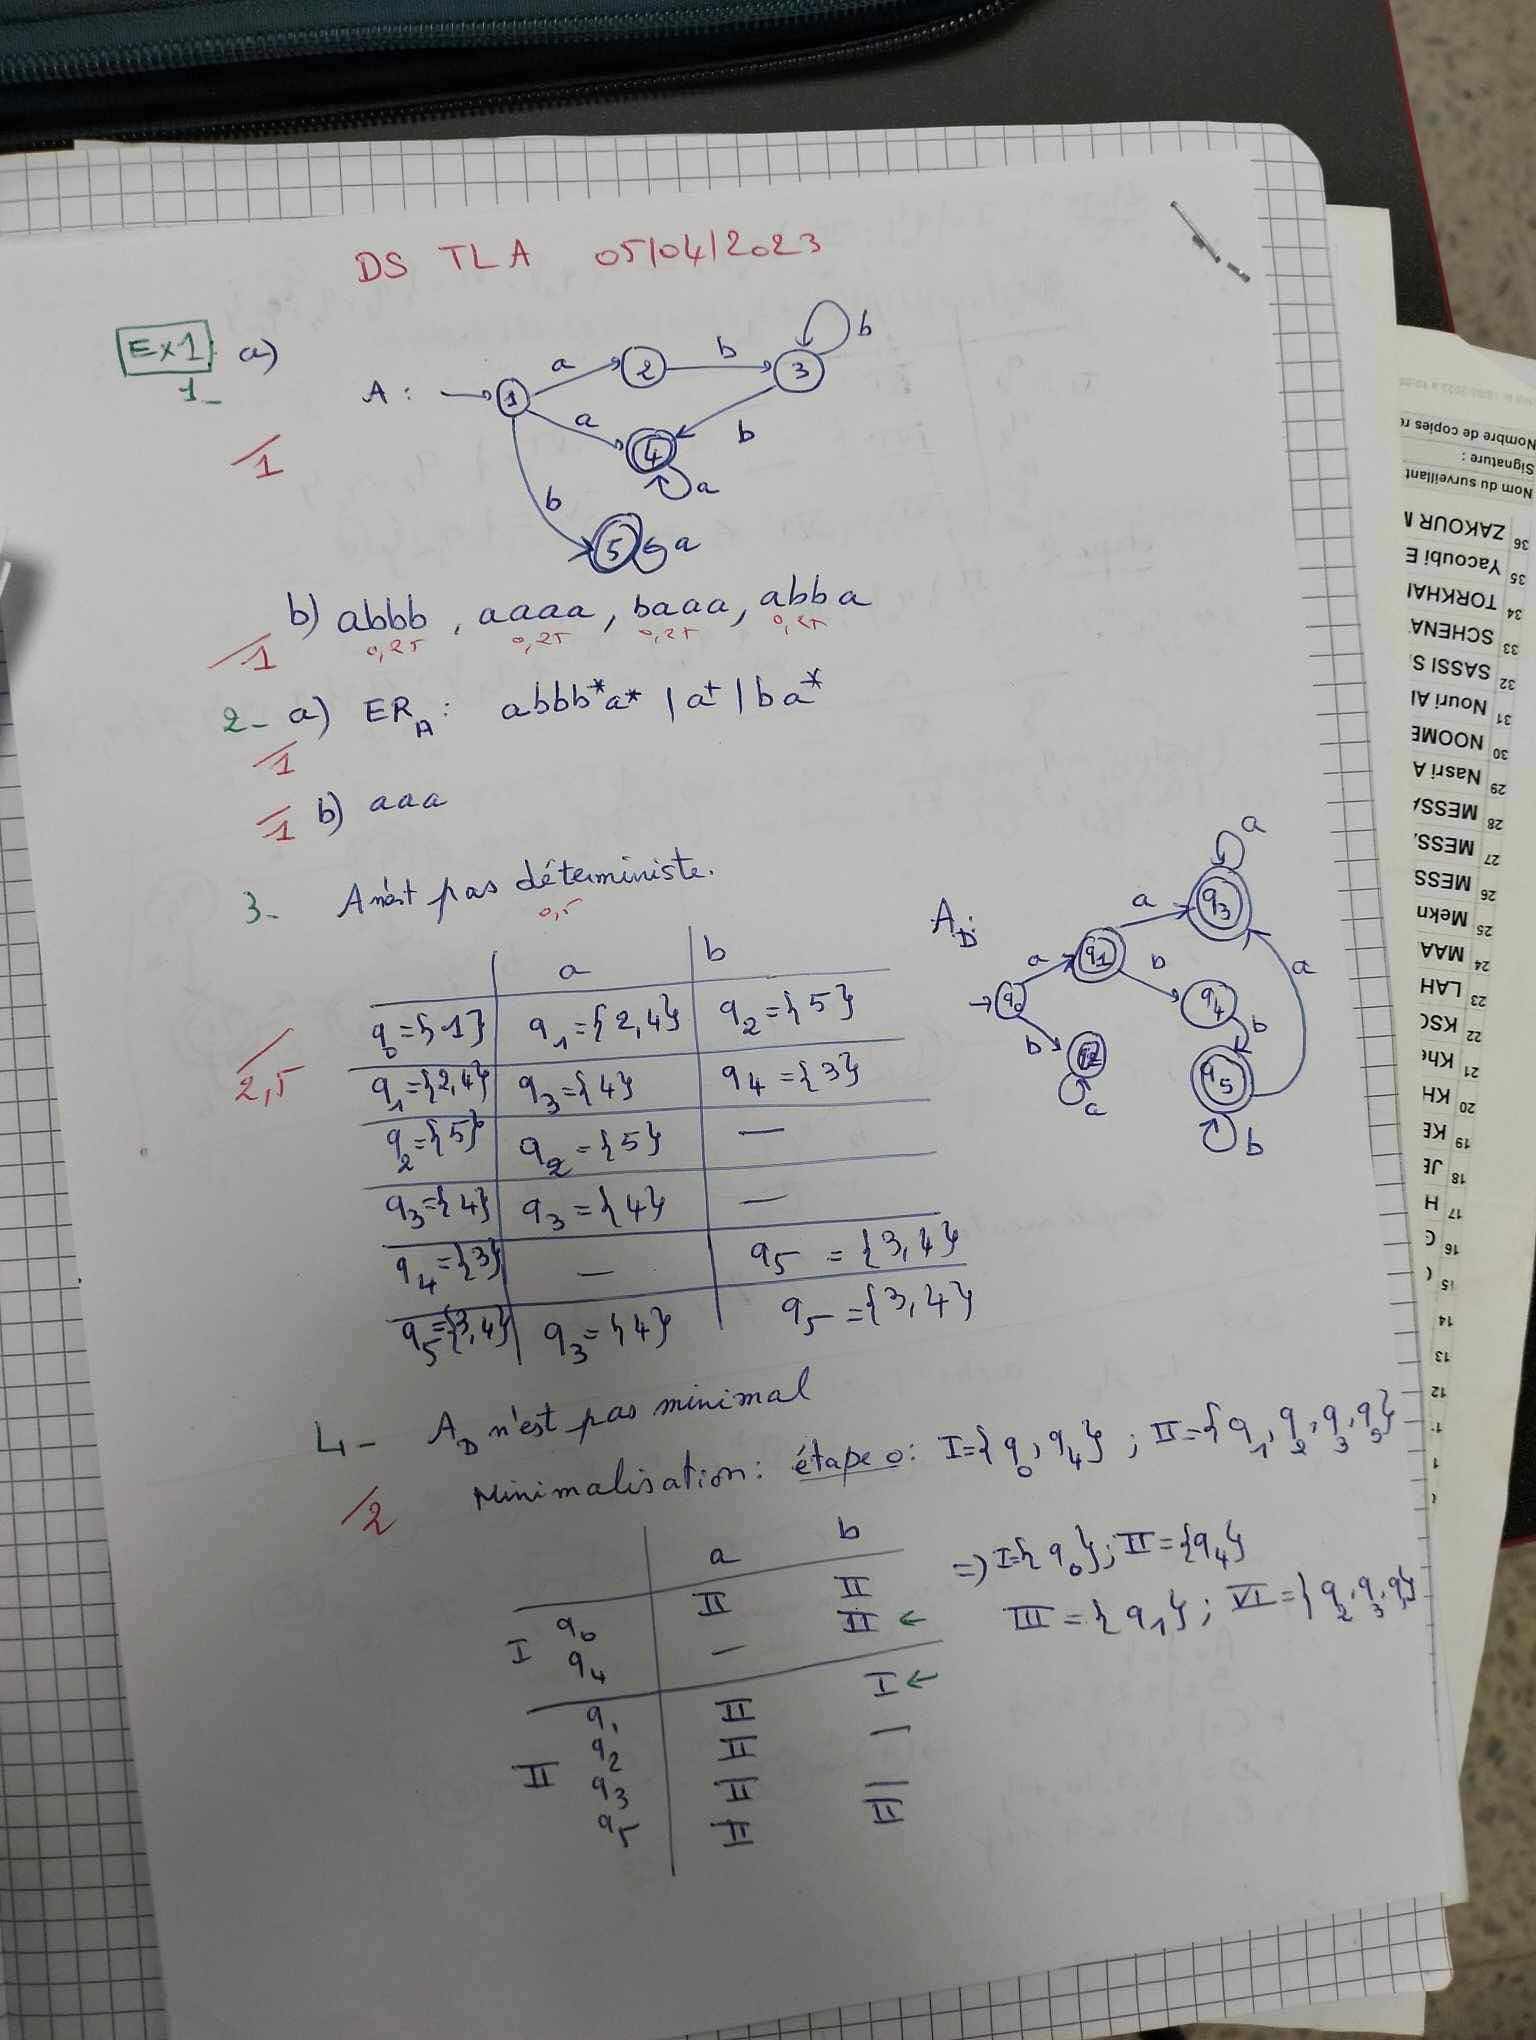 DS TLA 05/04/2023
Ex1
1- a)
A :
1 a 2 b 3 b
a 4 b
a
b 5 a
/1
b) abbb , aaaa , baaa , abba
0,25 0,25 0,25 0,25
/1
2- a) ER_A : abbb*a* | a⁺ | ba*
/1
b) aaa
/1
3- A n'est pas déterministe.
0,5
a b
q0={1} q1={2,4} q2={5}
q1={2,4} q3={4} q4={3}
q2={5} q2={5} —
q3={4} q3={4} —
q4={3} — q5={3,4}
q5={3,4} q3={4} q5={3,4}
/2,5
A_D:
q0 a q1 a q3 a
b q4 b q5 b
b q2 a
a
4- A_D n'est pas minimal
Minimalisation: étape 0: I={q0,q4} ; II={q1,q2,q3,q5}
/2
a b
I q0 II II
q4 — II ←
II q1 II I ←
q2 II —
q3 II —
q5 II II
=> I={q0} ; II={q4}
III={q1} ; VI={q2,q3,q5}
Nombre de copies
Signature :
Nom du surveillant
36 ZAKOUR M
35 Yacoubi E
34 TORKHA
33 SCHENA
32 SASSI S
31 Nouri Al
30 NOOME
29 Nasri A
28 MESSA
27 MESS
26 MESS
25 Mekn
24 MAA
23 LAH
22 KSO
21 Khe
20 KH
19 KE
18 JE
17 H
16
15
14
13
12